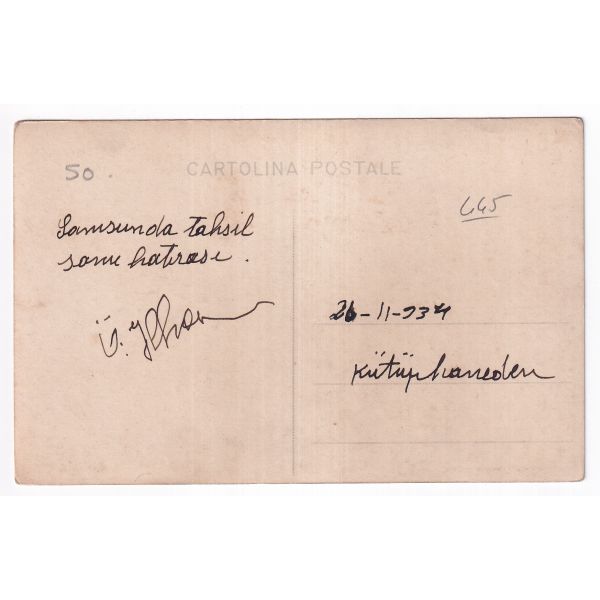 CARTOLINA POSTALE
50.
445
Samsunda tahsil
sonu hatırası.
26-11-937
Kütüphaneden